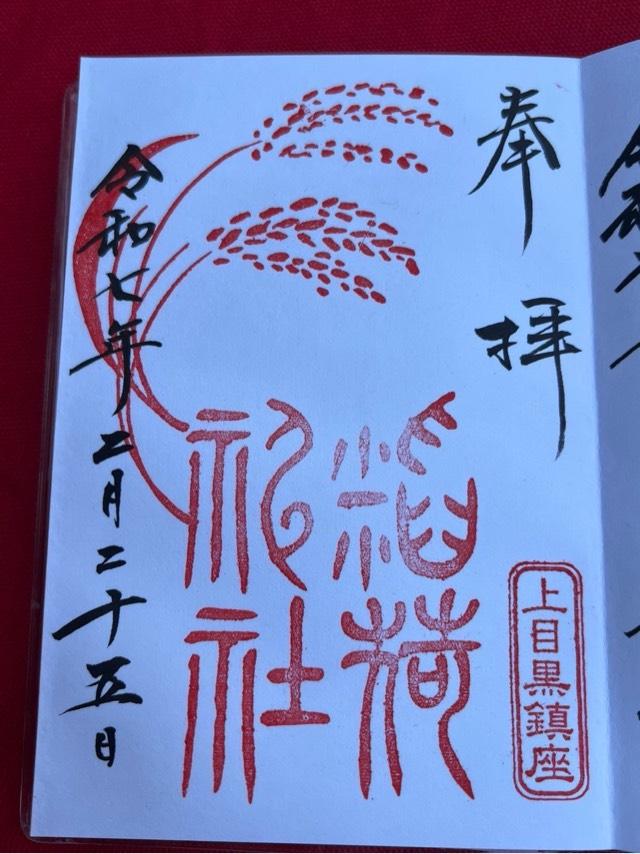 奉拝
上目黒鎮座
稲荷
祀社
令和七年二月二十五日